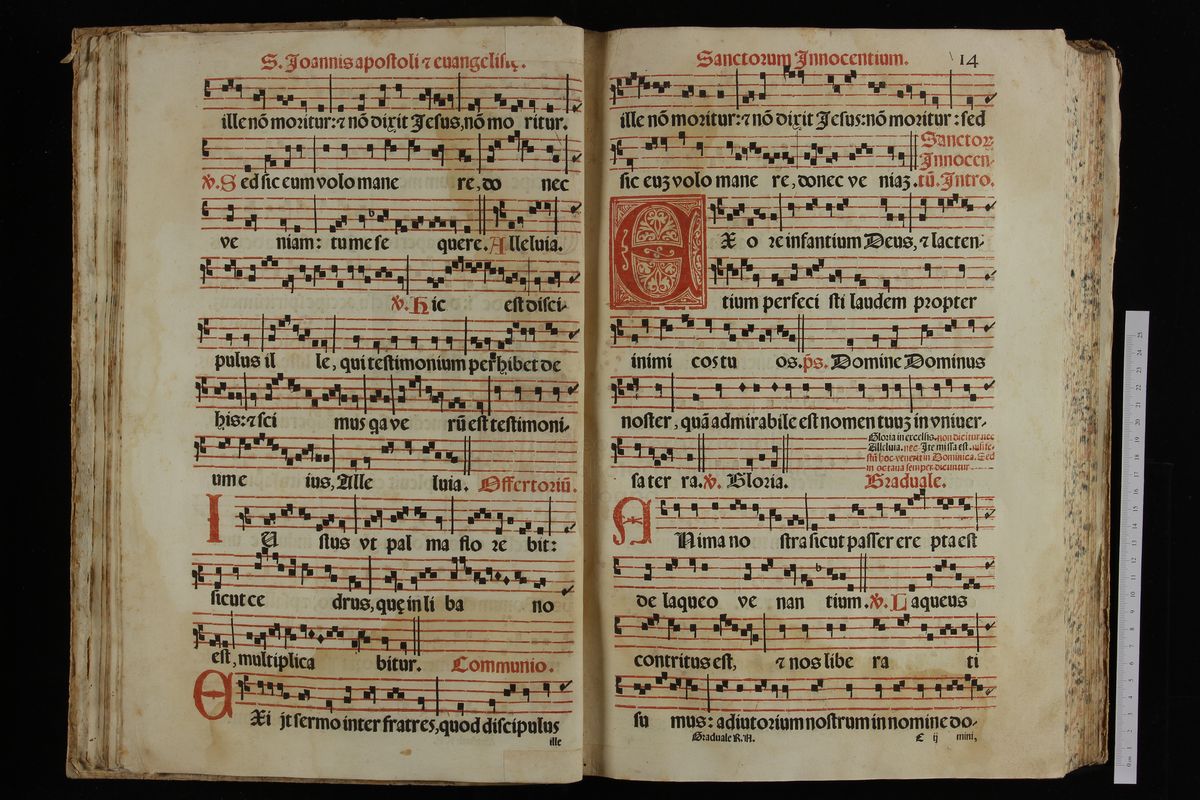 S. Joannis apostoli ⁊ euangelistę.
ille nõ moritur: ⁊ nõ dixit Jesus, nõ mo ritur.
℣. Sed sic eum volo mane re, do nec
ve niam: tu me se quere. Alleluia.
℣. Hic est disci-
pulus il le, qui testimonium perhibet de
his: ⁊ sci mus qa ve rũ est testimoni-
um e ius, Alle luia. Offertoriũ.
IUstus vt pal ma flo re bit:
sicut ce drus, quę in li ba no
est, multiplica bitur. Communio.
EXi jt sermo inter fratres, quod discipulus
ille
Sanctorum Innocentium. 14
ille non moritur: ⁊ nõ dixit Jesus: nõ moritur: sed
sic euꝫ volo mane re, donec ve niaꝫ. Sanctoꝝ
Innocen-
tũ. Intro.
EX o re infantium Deus, ⁊ lacten-
tium perfeci sti laudem propter
inimi cos tu os. ps. Domine Dominus
noster, quã admirabile est nomen tuuꝫ in vniuer-
Gloria in excelsis. non dicitur nec
Alleluia. nec Ite missa est. nisi fe-
stũ hoc venerit in Dominica. Sed
in octaua semper dicuntur
sa ter ra. ℣. Gloria. Graduale.
ANima no stra sicut passer ere pta est
de laqueo ve nan tium. ℣. Laqueus
contritus est, ⁊ nos libe ra ti
su mus: adiutorium nostrum in nomine do-
Graduale R. A. C ij mini,